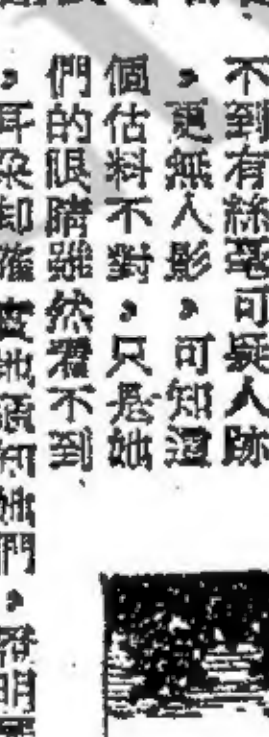 不到有絲毫可疑人跡
，更無人影，可知這
個估料不對，只是她
們的眼睛雖然看不到
，耳朶却確實地通知她們，